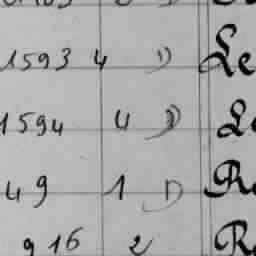 1593 4 D Le
1594 4 D Le
49 1 D Ro
9 16 2 R